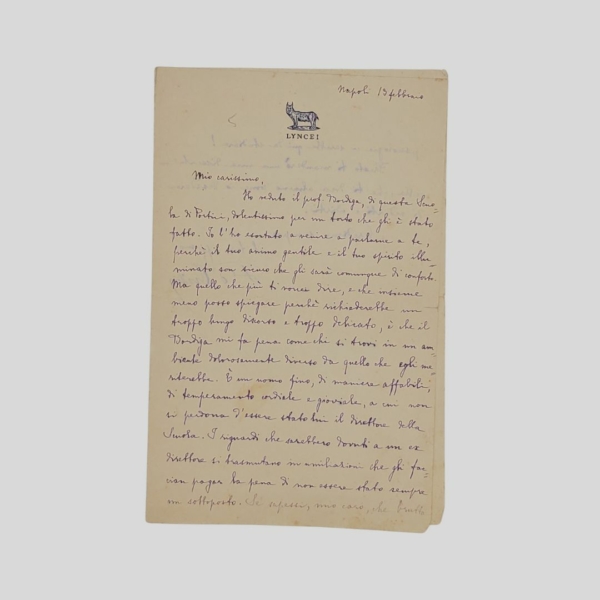 Napoli 13 febbraio
LYNCEI
Mio carissimo,
Ho veduto il prof. Bordiga, di questa Scuo-
la di Portici, dolentissimo per un torto che gli è stato
fatto. Io l'ho esortato a venire a parlarne a te,
perchè il tuo animo gentile e il tuo spirito illu-
minato son sicuro che gli sarà comunque di conforto.
Ma quello che più ti vorrei dire, e che insieme
meno posso spiegare perchè richiederebbe un
troppo lungo discorso e troppo delicato, è che il
Bordiga mi fa pena come che si trovi in un am-
biente dolorosamente diverso da quello che egli me-
riterebbe. È un uomo fino, di maniere affabili,
di temperamento cordiale e gioviale, a cui non
si perdona d'essere stato lui il direttore della
Scuola. I riguardi che sarebbero dovuti a un ex
direttore si trasmutano in umiliazioni che gli fac-
cian pagar la pena di non essere stato sempre
un sottoposto. Se sapessi, mio caro, che